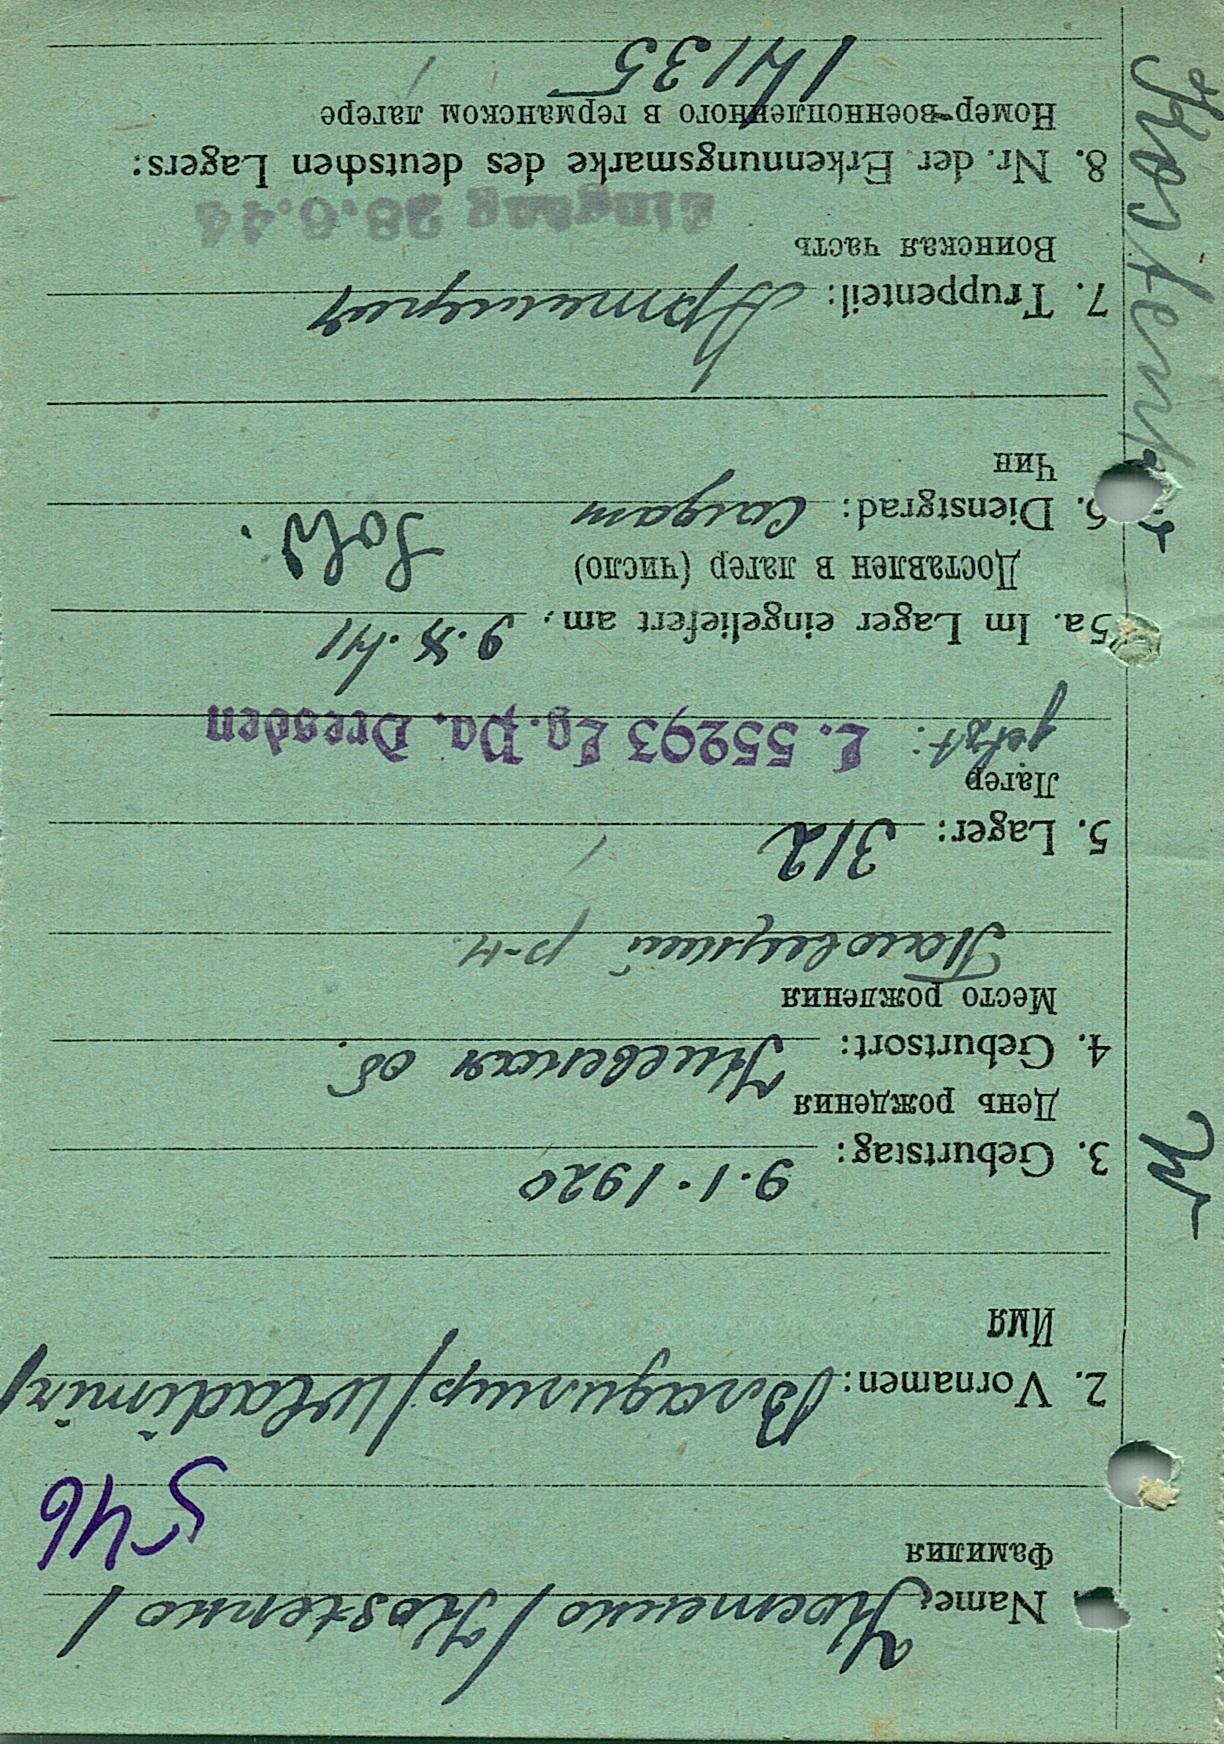 Name: Костенко /Kostenko/
Фамилия
546
2. Vornamen: Владимир /Wladimir/
Имя
3. Geburtstag: 9.1.1920
День рождения
4. Geburtsort: Киевская об.
Место рождения
р-н.
5. Lager: 312
Лагерь
jetzt: L. 55293 Lg. Pa. Dresden
5a. Im Lager eingeliefert am: 9.X.41
Доставлен в лагерь (число)
6. Dienstgrad: Солдат Sold.
Чин
7. Truppenteil: Артиллерия
Воинская часть
Eingang 28.6.44
8. Nr. der Erkennungsmarke des deutschen Lagers:
Номер военнопленного в германском лагере
14135
Kostenko
W